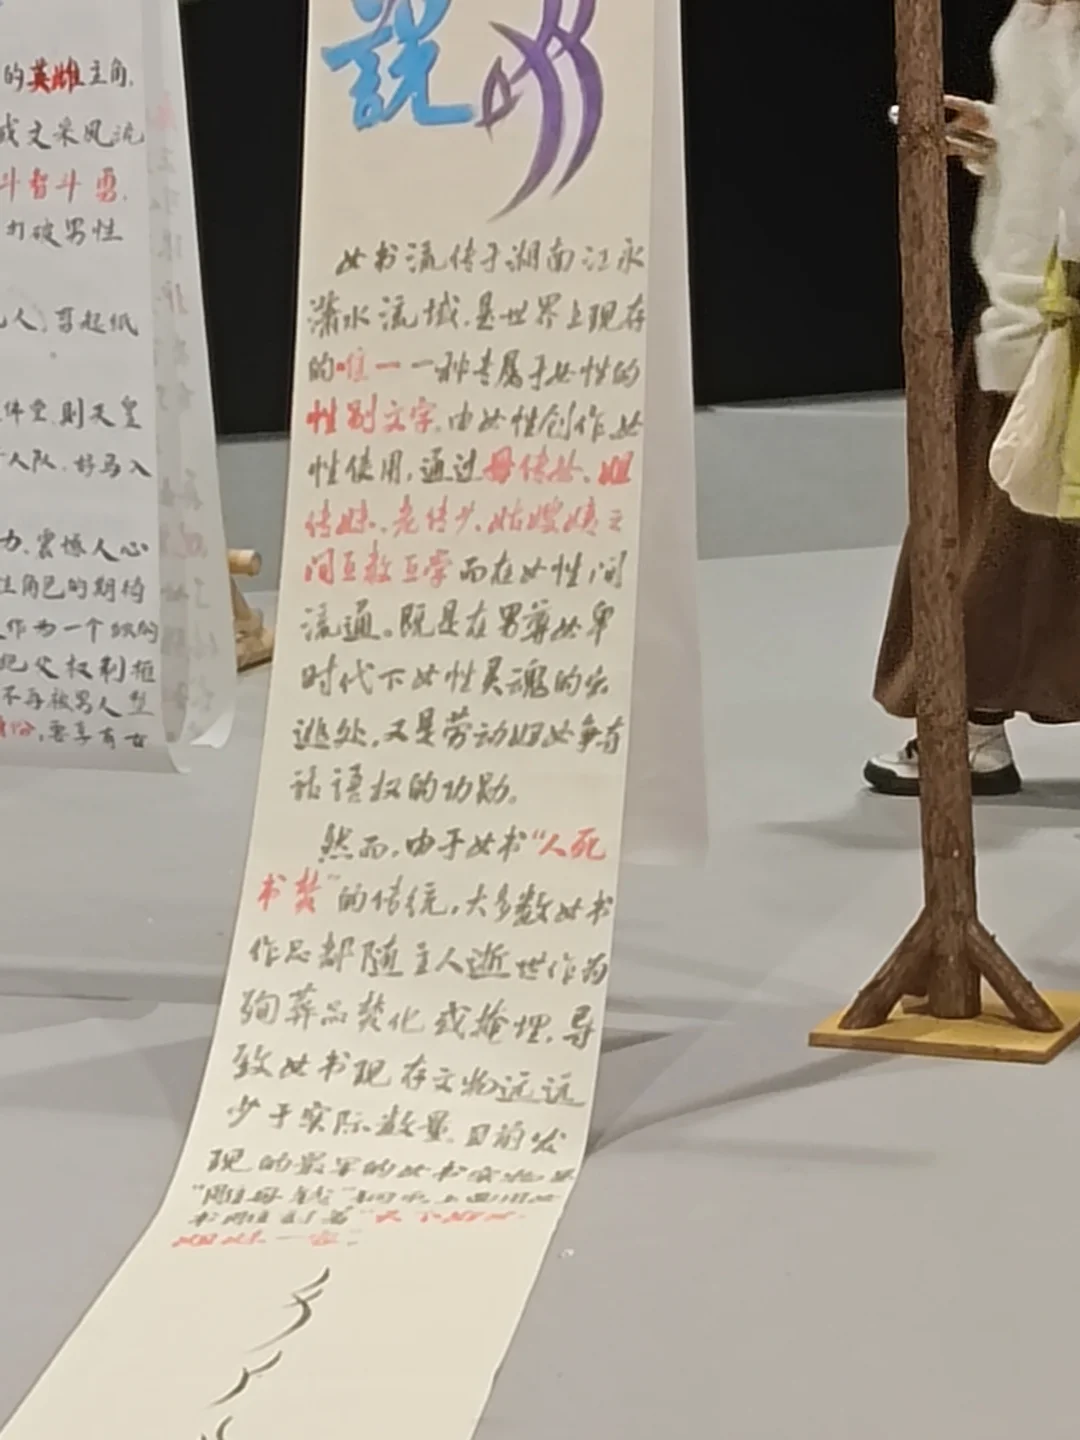 的英雄主角,
或文采风流
斗智斗勇,
打破男性
人,骂起纸
佛堂,则天皇
人队,好马入
力,震撼人心
角色的期待
作为一个
把父权制
不再被男人
要享有女
説
女书流传于湖南江永
潇水流域,是世界上现存
的唯一一种专属于女性的
性别文字,由女性创作,女
性使用,通过母传女、姐
传妹、老传少、姑嫂姨之
间互教互学而在女性间
流通。既是在男尊女卑
时代下女性灵魂的出
逃处,又是劳动妇女争夺
话语权的功勋。
然而,由于女书“人死
书焚”的传统,大多数女书
作品都随主人逝世作为
殉葬品焚化或掩埋,导
致女书现存文物远远
少于实际数量。目前发
现的最早的女书实物是